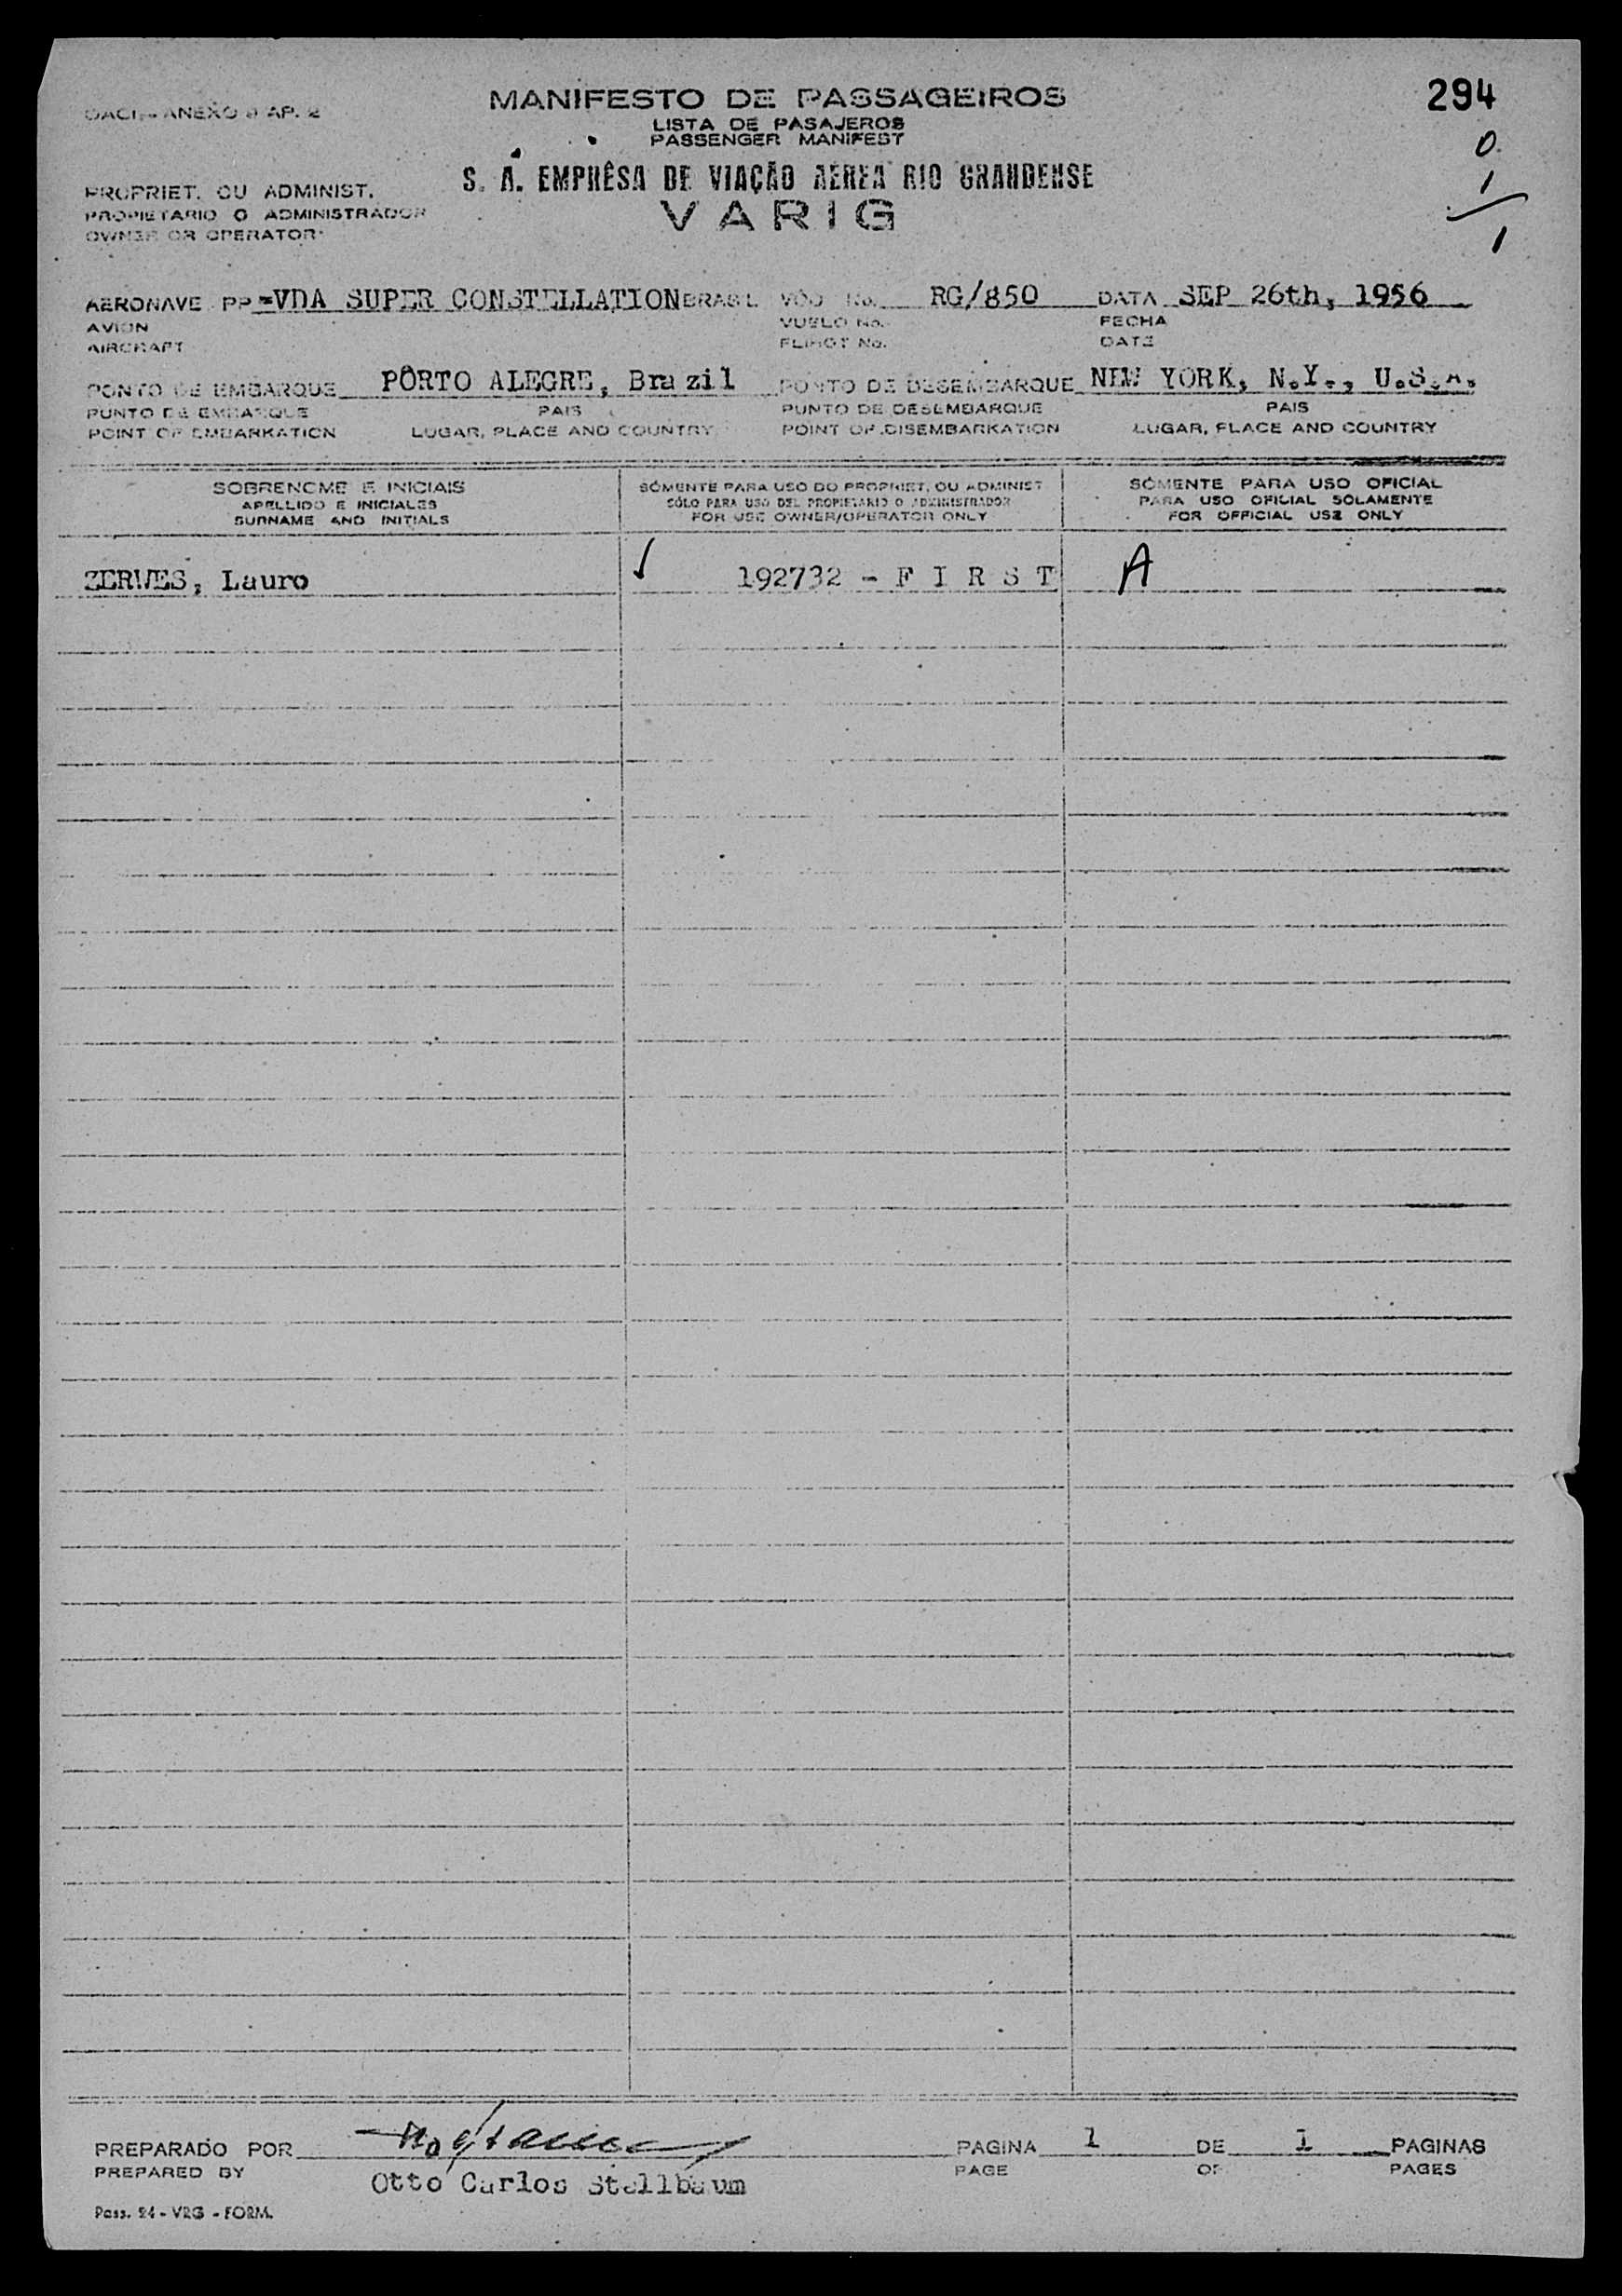 OACI - ANEXO 9 AP. 2
MANIFESTO DE PASSAGEIROS
LISTA DE PASAJEROS
PASSENGER MANIFEST
294
0
1
1
S. A. EMPRÊSA DE VIAÇÃO AÉREA RIO GRANDENSE
VARIG
PROPRIET. OU ADMINIST.
PROPIETARIO O ADMINISTRADOR
OWNER OR OPERATOR
AERONAVE PP-VDA SUPER CONSTELLATION BRASIL VÔO No. RG/850 DATA SEP 26th, 1956
AVION VUELO No. FECHA
AIRCRAFT FLIHGT No. DATE
PONTO DE EMBARQUE PÔRTO ALEGRE, Brazil PONTO DE DESEMBARQUE NEW YORK, N.Y., U.S.A.
PUNTO DE EMBARQUE PAIS PUNTO DE DESEMBARQUE PAIS
POINT OF EMBARKATION LUGAR, PLACE AND COUNTRY POINT OF DISEMBARKATION LUGAR, PLACE AND COUNTRY
SOBRENOME E INICIAIS SÓMENTE PARA USO DO PROPRIET. OU ADMINIST SÓMENTE PARA USO OFICIAL
APELLIDO E INICIALES SÓLO PARA USO DEL PROPIETARIO O ADMINISTRADOR PARA USO OFICIAL SOLAMENTE
SURNAME AND INITIALS FOR USE OWNER/OPERATOR ONLY FOR OFFICIAL USE ONLY
ZERWES, Lauro ✓ 192732 - F I R S T A
PREPARADO POR PAGINA 1 DE 1 PAGINAS
PREPARED BY Otto Carlos Stellbaum PAGE OF PAGES
Pass. 24 - VRG - FORM.